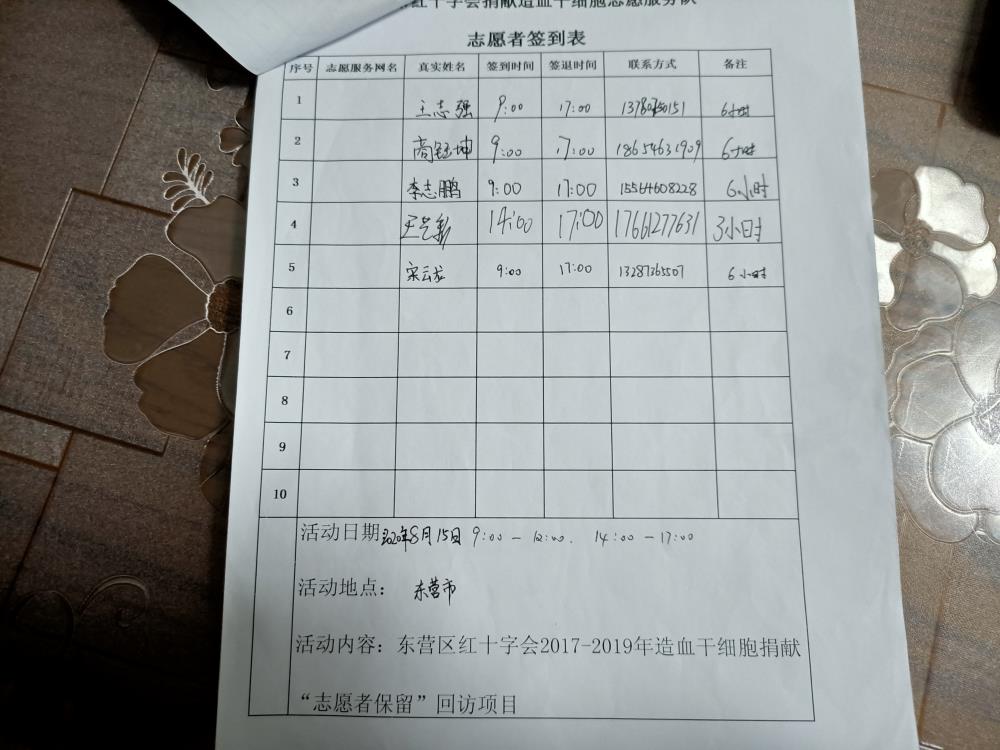 红十字会捐献造血干细胞志愿服务队
志愿者签到表
序号 志愿服务网名 真实姓名 签到时间 签退时间 联系方式 备注
1 王志强 9:00 17:00 6小时
2 高钰坤 9:00 17:00 18654631909 6小时
3 李志鹏 9:00 17:00 15564608228 6小时
4 14:00 17:00 17661277631 3小时
5 宋云龙 9:00 17:00 13287365507 6小时
6
7
8
9
10
活动日期 2020年8月15日 9:00 - 12:00. 14:00 - 17:00
活动地点： 东营市
活动内容：东营区红十字会2017-2019年造血干细胞捐献
“志愿者保留”回访项目